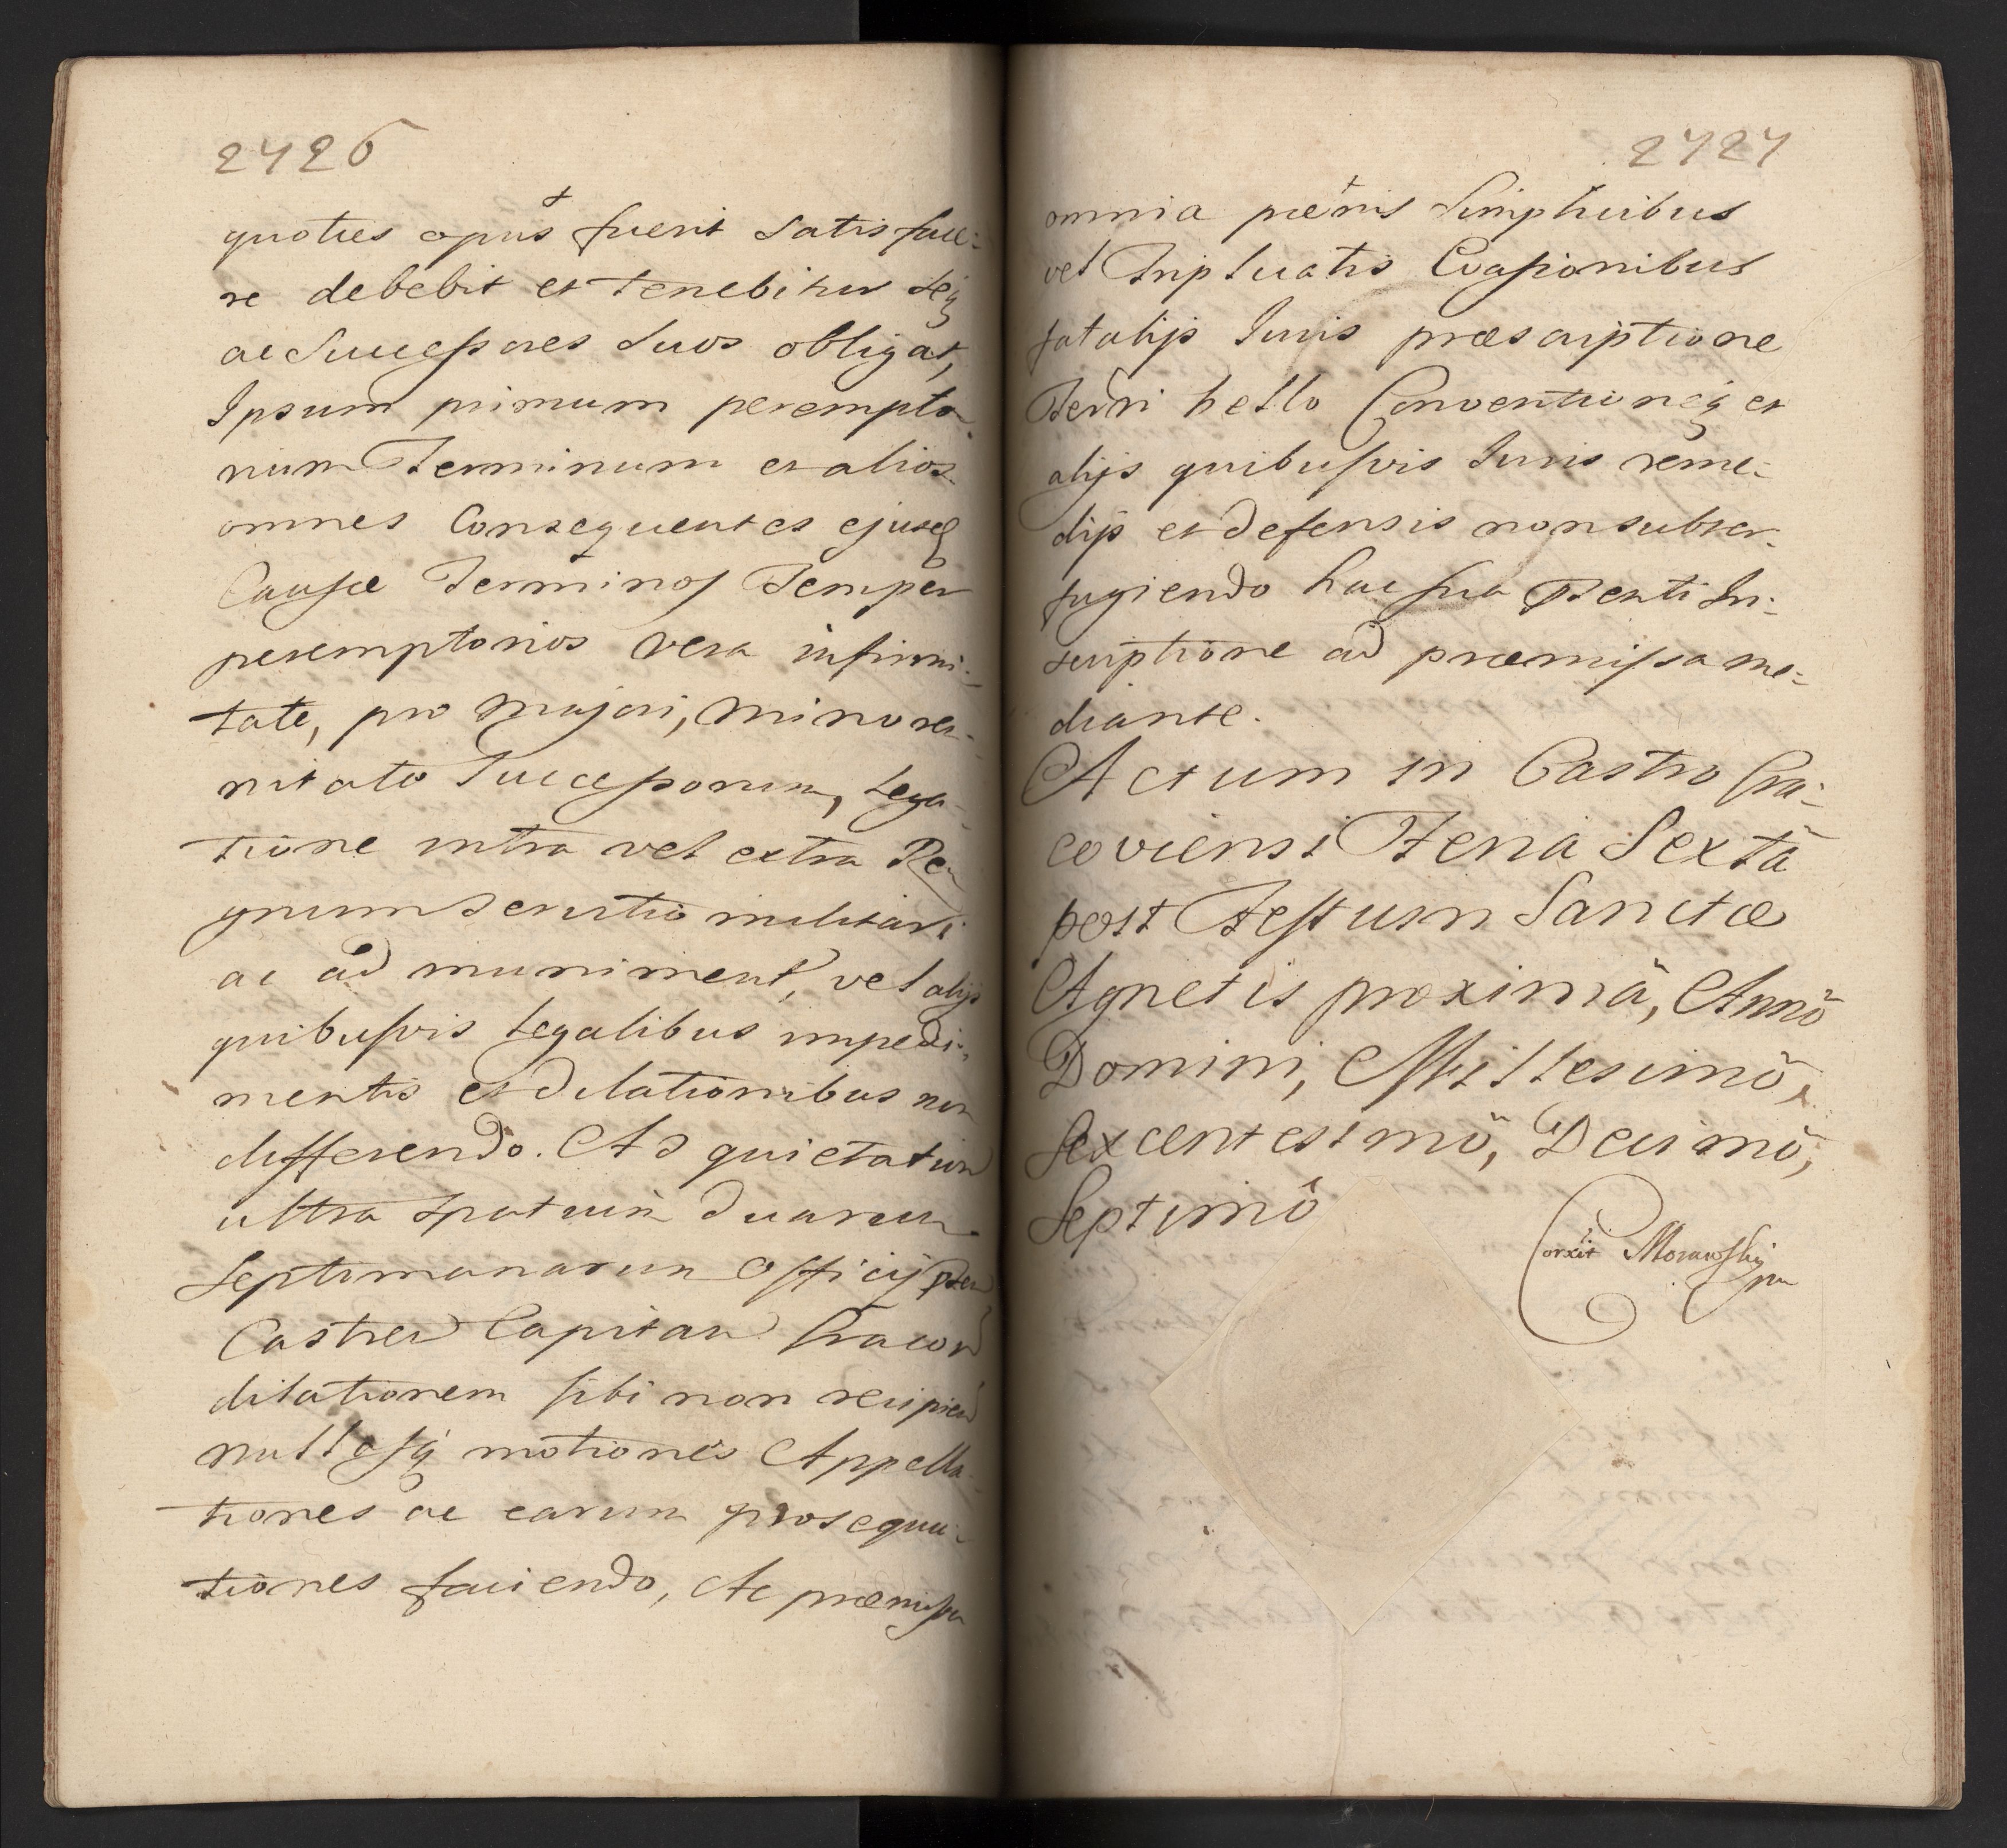 2726
quoties opus fuerit Satisface:
re debebit et tenebitur seq
ac Successores Suos obligat,
Ipsum primum perempto
rium Terminum et alios
omnes Consequentes ejusd
Causæ Terminos Semper
peremptorios vera infirmi:
tate, pro majori, minoren:
nitate Successorum, lega
tione intra vel extra Re
gnum Servitio militari
ac ad muniment, vel alijs
quibusvis legalibus impedi:
mentis et dilationibus non
differendo. Ad quietation
ultra Spatium duarum
Septimanarum Officij Pnt
Castren Capitan Cracov
dilationem sibi non recipien
nullasq motiones Appella
tiones ac earum prosequu:
tiones faciendo, Ac præmissa
2727
omnia pœnis Simplicibus
vel Triplicatis Evasionibus
fatalijs Juris præscriptione
Terri bello Conventioneq et
alijs quibusvis Juris reme:
dijs et defensis non subter:
fugiendo hac sua Pnti In:
scriptione ad præmissa me:
diante.
Actum in Castro Cra:
coviensi Feria Sexta
post Festum Sanctæ
Agnetis proximâ, Annô
Domini, Millesimô,
Sexcentesimô, Decimô,
Septimô
Corxit Morawskij
mp